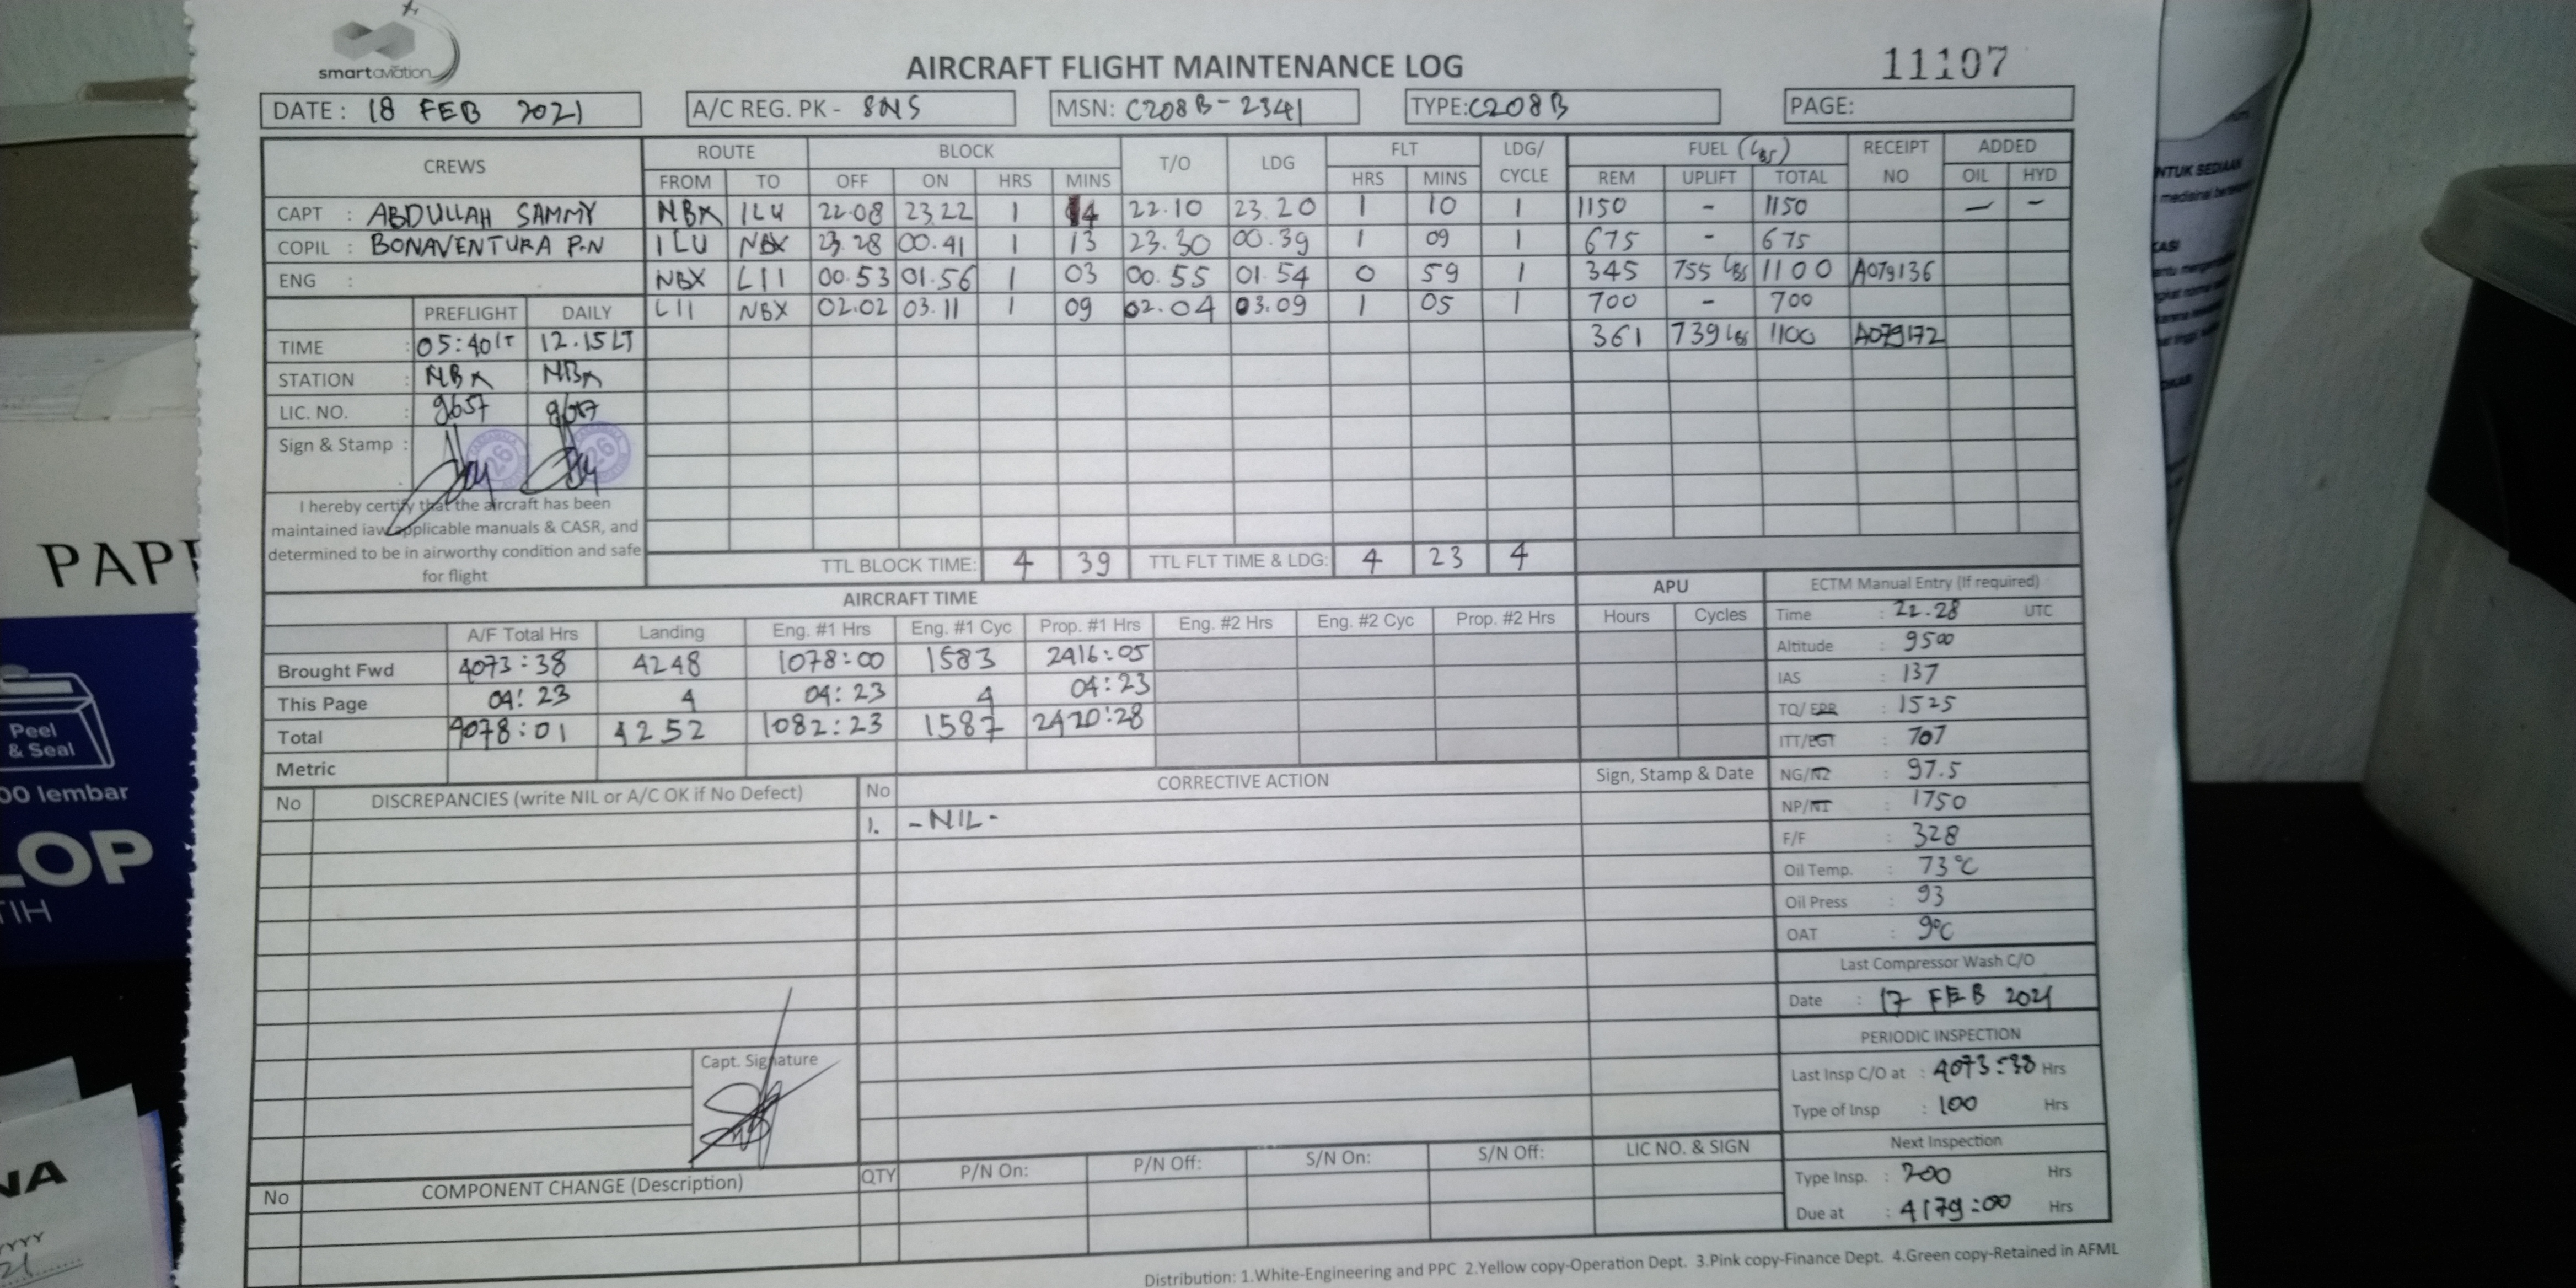 smartaviation
AIRCRAFT FLIGHT MAINTENANCE LOG
11107
DATE : 18 FEB 2021
A/C REG. PK - SNS
MSN: C208B-2341
TYPE: C208B
PAGE:
CREWS
ROUTE BLOCK T/O LDG FLT LDG/CYCLE FUEL (Lbs) RECEIPT NO ADDED
FROM TO OFF ON HRS MINS HRS MINS REM UPLIFT TOTAL OIL HYD
CAPT : ABDULLAH SAMMY NBX ILU 22.08 23.22 1 14 22.10 23.20 1 10 1 1150 - 1150 - -
COPIL : BONAVENTURA P.N ILU NBX 23.28 00.41 1 13 23.30 00.39 1 09 1 675 - 675
ENG : NBX LII 00.53 01.56 1 03 00.55 01.54 0 59 1 345 755 Lbs 1100 A079136
LII NBX 02.02 03.11 1 09 02.04 03.09 1 05 1 700 - 700
361 739 Lbs 1100 A079172
PREFLIGHT DAILY
TIME : 05:40LT 12.15LT
STATION : NBX NBX
LIC. NO. : 9657
Sign & Stamp :
26 26
I hereby certify that the aircraft has been
maintained iaw applicable manuals & CASR, and
determined to be in airworthy condition and safe
for flight
TTL BLOCK TIME: 4 39 TTL FLT TIME & LDG: 4 23 4
AIRCRAFT TIME APU
A/F Total Hrs Landing Eng. #1 Hrs Eng. #1 Cyc Prop. #1 Hrs Eng. #2 Hrs Eng. #2 Cyc Prop. #2 Hrs Hours Cycles
Brought Fwd 4073:38 4248 1078:00 1583 2416:05
This Page 04:23 4 04:23 4 04:23
Total 4078:01 4252 1082:23 1587 2420:28
Metric
ECTM Manual Entry (If required)
Time : 22.28 UTC
Altitude : 9500
IAS : 137
TQ/EPR : 1525
ITT/EGT : 707
NG/N2 : 97.5
NP/N1 : 1750
F/F : 328
Oil Temp. : 73°C
Oil Press : 93
OAT : 9°C
Last Compressor Wash C/O
Date : 17 FEB 2021
PERIODIC INSPECTION
Last Insp C/O at : 4073:38 Hrs
Type of Insp : 100 Hrs
Next Inspection
Type Insp. : 200 Hrs
Due at : 4179:00 Hrs
No DISCREPANCIES (write NIL or A/C OK if No Defect) No CORRECTIVE ACTION Sign, Stamp & Date
1. -NIL-
Capt. Signature
No COMPONENT CHANGE (Description) QTY P/N On: P/N Off: S/N On: S/N Off: LIC NO. & SIGN
Distribution: 1.White-Engineering and PPC 2.Yellow copy-Operation Dept. 3.Pink copy-Finance Dept. 4.Green copy-Retained in AFML
Peel
& Seal
lembar